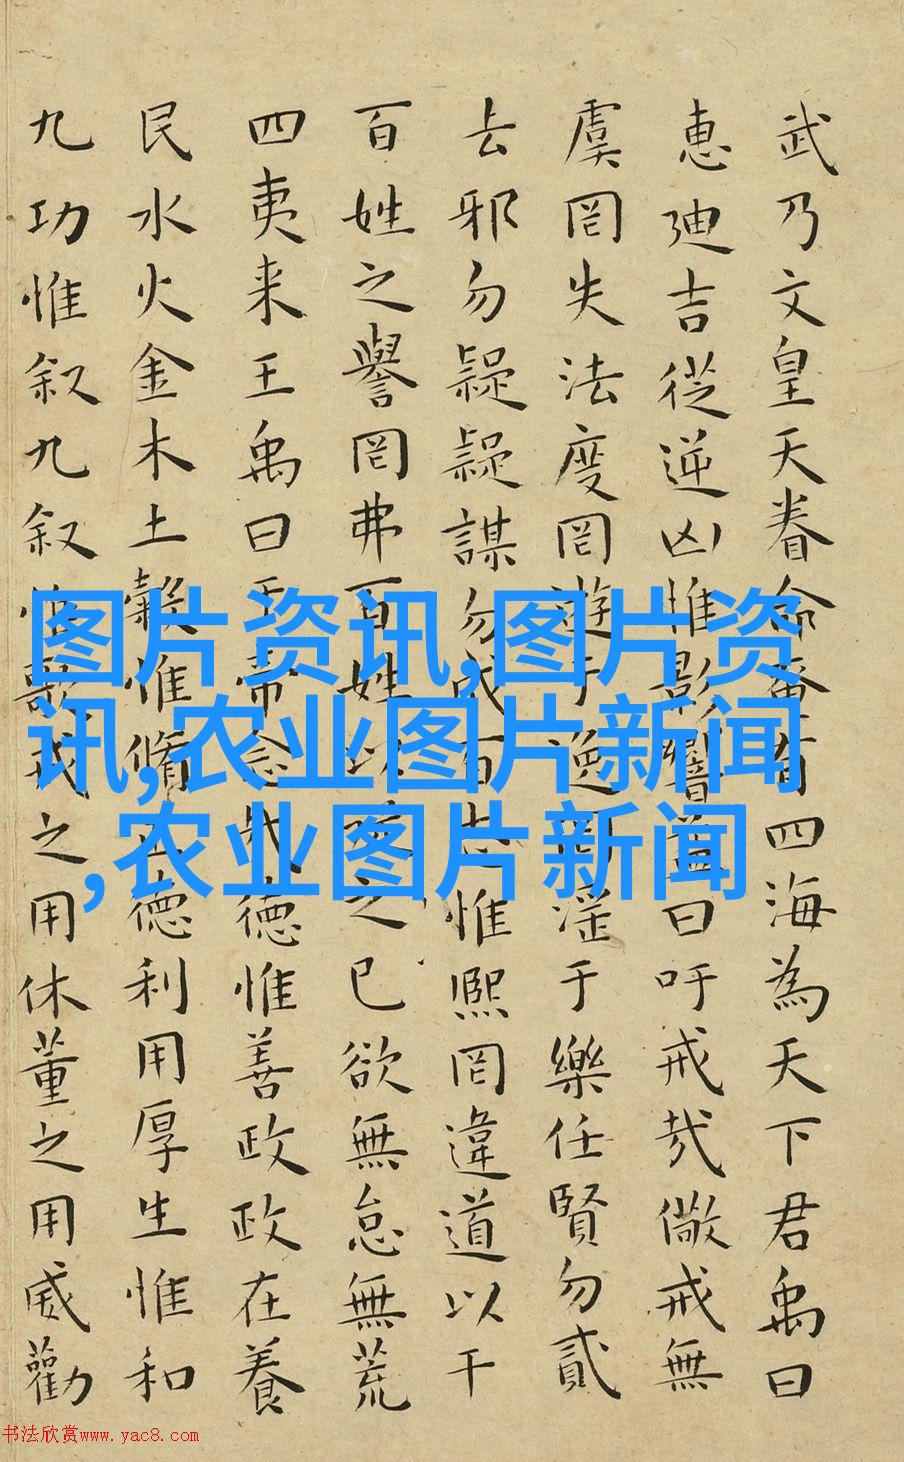 武乃文皇天眷命奄有四海為天下君禹曰
惠迪吉從逆凶惟影響益曰吁戒哉儆戒無
虞罔失法度罔遊于逸罔淫于樂任賢勿貳
去邪勿疑疑謀勿成百志惟熙罔違道以干
百姓之譽罔弗百姓以之已欲無怠無荒
四夷来王禹曰帝念哉德惟善政政在養
民水火金木土穀惟脩正德利用厚生惟和
九功惟叙九叙惟歌戒之用休董之用威勸
图片资讯,图片资
讯,农业图片新闻
,农业图片新闻
书法欣赏www.yac8.com